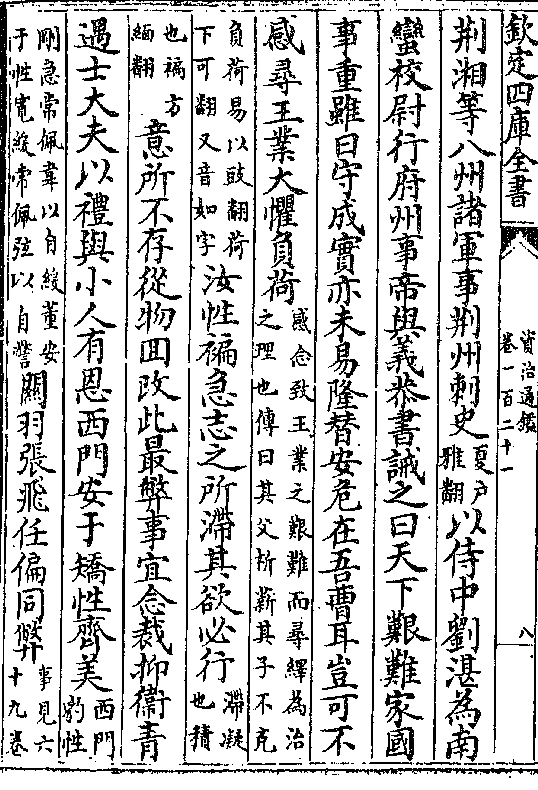 欽定四庫全書
資治通鑑
卷一百二十一
八
荆湘等八州諸軍事荆州刺史
夏户
雅翻
以侍中劉湛為南
蠻校尉行府州事帝與義恭書誡之曰天下艱難家國
事重雖曰守成實亦未易隆替安危在吾曹耳豈可不
感尋王業大懼負荷
感念致王業之艱難而尋繹為治
之理也傳曰其父析薪其子不克
負荷易以豉翻荷
下可翻又音如字
汝性褊急志之所滯其欲必行
滯凝
也積
也褊方
緬翻
意所不存從物回改此最弊事宜念裁抑衞青
遇士大夫以禮與小人有恩西門安于矯性齊美
西門
豹性
剛急常佩韋以自緩董安
于性寛緩常佩弦以自警
關羽張飛任偏同弊
事見六
十九卷